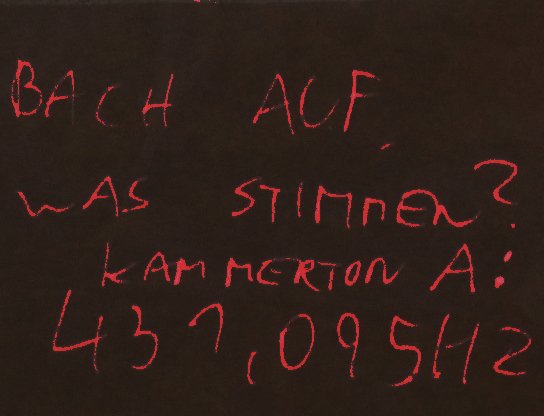 BACH AUF.
WAS STIMMEN?
KAMMERTON A:
431,095Hz